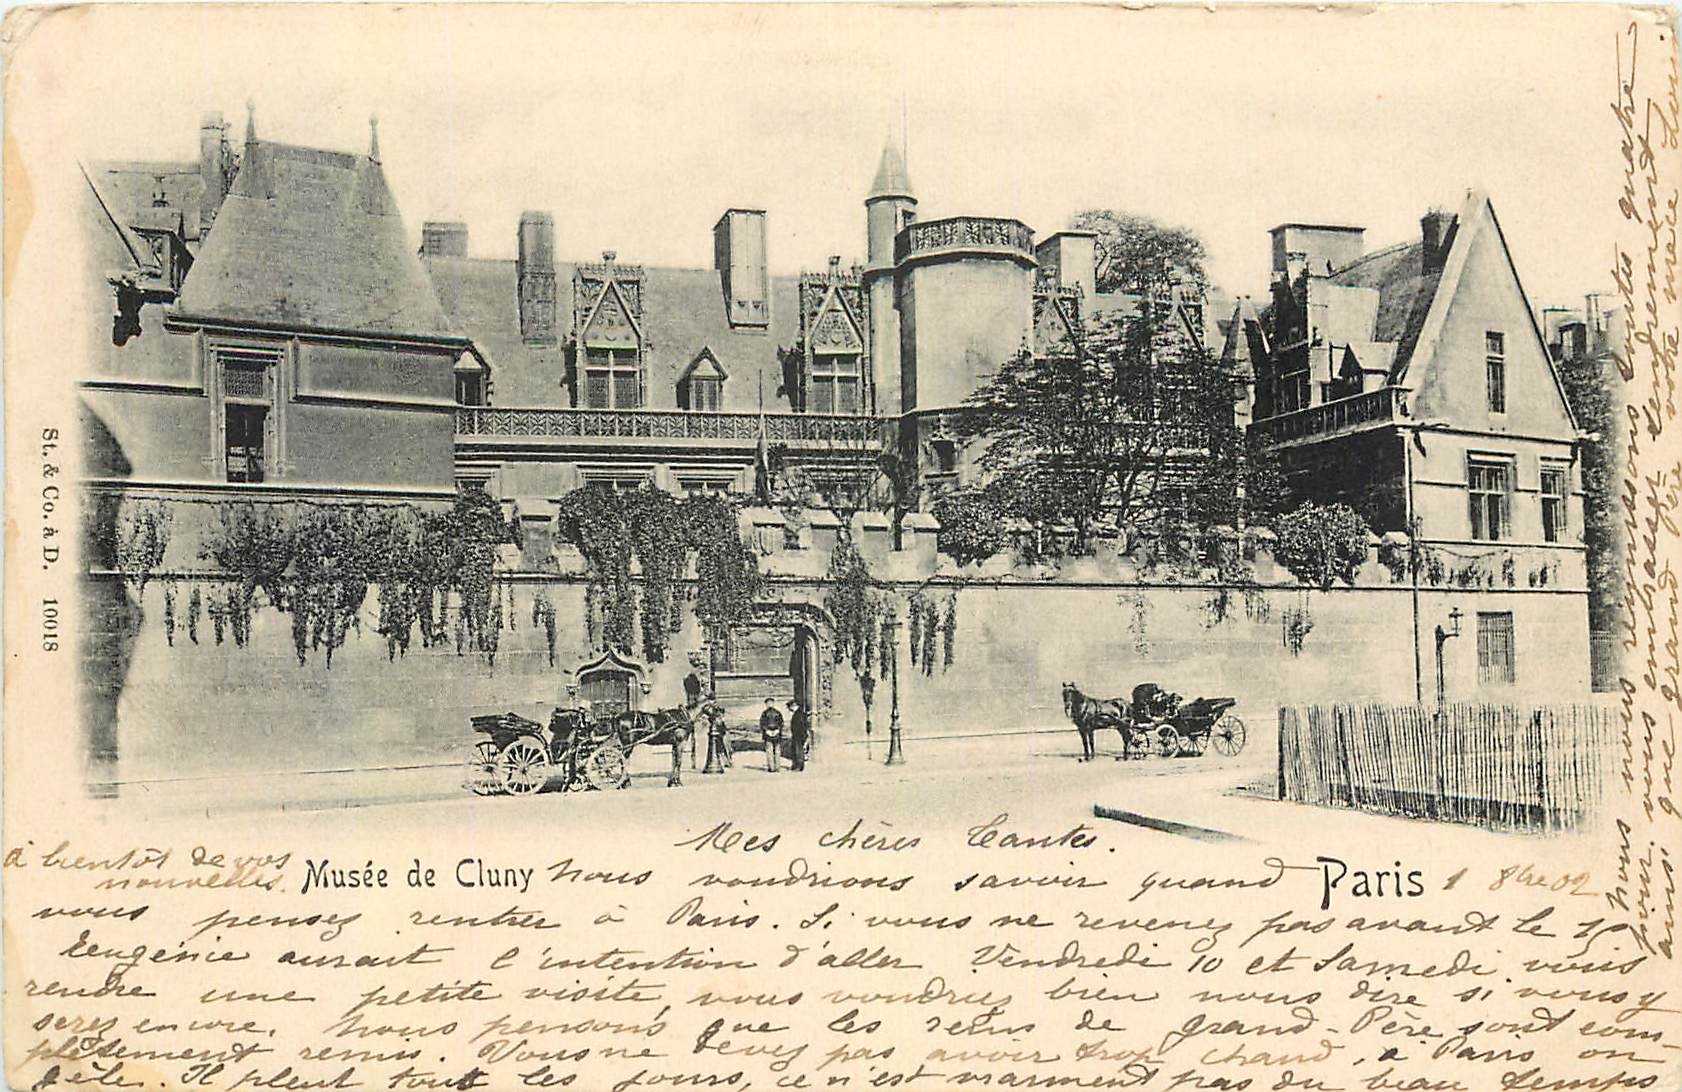 St. & Co. à D. 10018
Mes chères Tantes.
Musée de Cluny
Paris 1 8bre 02
Nous voudrions savoir quand
vous pensez rentrer à Paris. Si vous ne revenez pas avant le 15
Eugénie aurait l'intention d'aller Vendredi 10 et Samedi vous
rendre une petite visite, vous voudriez bien nous dire si vous y
serez encore. Nous pensons que les reins de Grand-Père sont com-
plètement remis. Vous ne devez pas avoir trop chaud, à Paris on
gèle. Il pleut tout les jours, ce n'est vraiment pas du beau temps
Nous nous réunissons toutes quatre
pour vous embrasser tendrement
ainsi que grand Père votre nièce Louise
à bientôt de vos
nouvelles.